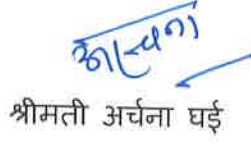 अर्चना
श्रीमती अर्चना घई